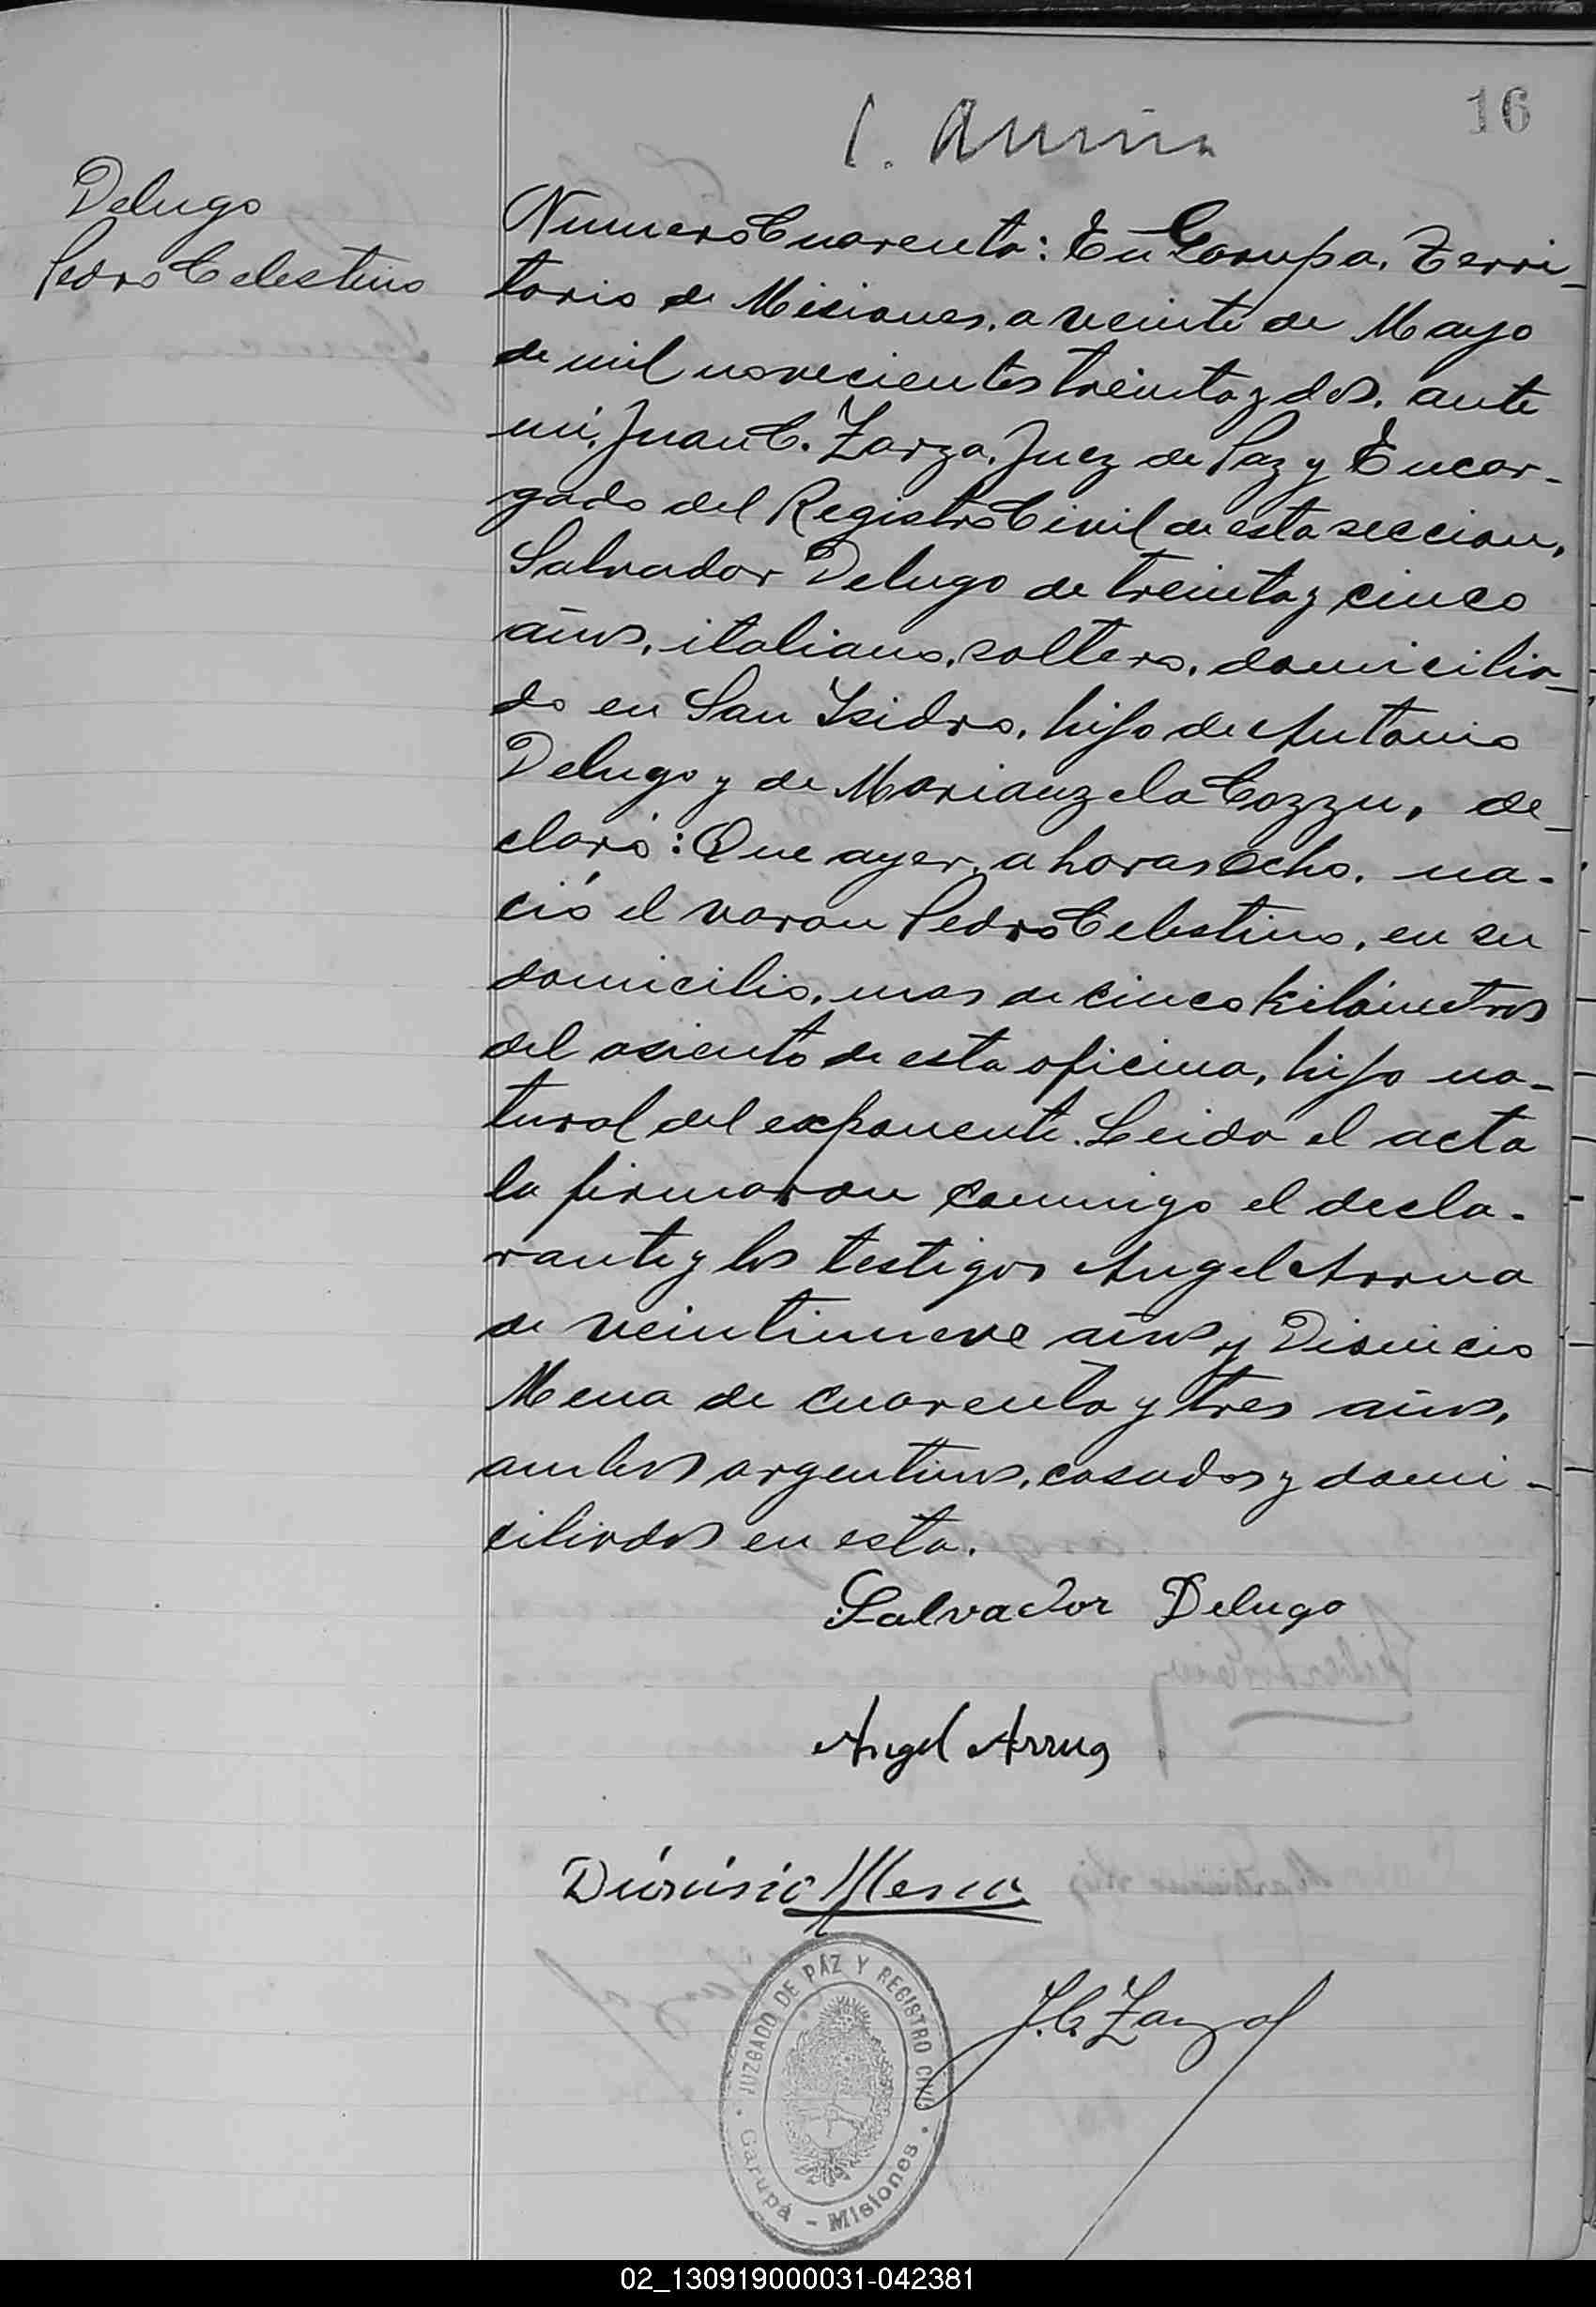 16
Delugo
Pedro Celestino
Numero Cuarenta: En Garupa, Terri-
torio de Misiones, a veinte de Mayo
de mil novecientos treinta y dos, ante
mi, Juan C. Zarza, Juez de Paz y Encar-
gado del Registro Civil de esta seccion,
Salvador Delugo de treinta y cinco
años, italiano, soltero, domicilia-
do en San Isidro, hijo de Antonio
Delugo y de Marianzela Cozzu, de-
claró: Que ayer, a horas ocho, na-
ció el varon Pedro Celestino, en su
domicilio, mas de cinco kilómetros
del asiento de esta oficina, hijo na-
tural del exponente. Leida el acta
la firmaron conmigo el decla-
rante y los testigos Angel Arrua
de veintinueve años y Disnicio
Mena de cuarenta y tres años,
ambos argentinos, casados y domi-
ciliados en esta.
Salvador Delugo
Angel Arrua
Dionisio Mena
J. C. Zarza
JUZGADO DE PAZ Y REGISTRO CIVIL
Garupá - Misiones
02_130919000031-042381